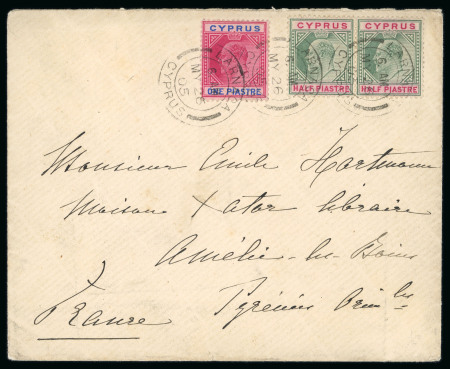 CYPRUS CYPRUS CYPRUS
ONE PIASTRE HALF PIASTRE HALF PIASTRE
LARNACA CYPRUS MY 26 05
Monsieur Emile Hartmann
Maison Xatar libraire
Amélie-les-Bains
Pyrénées Orles
France